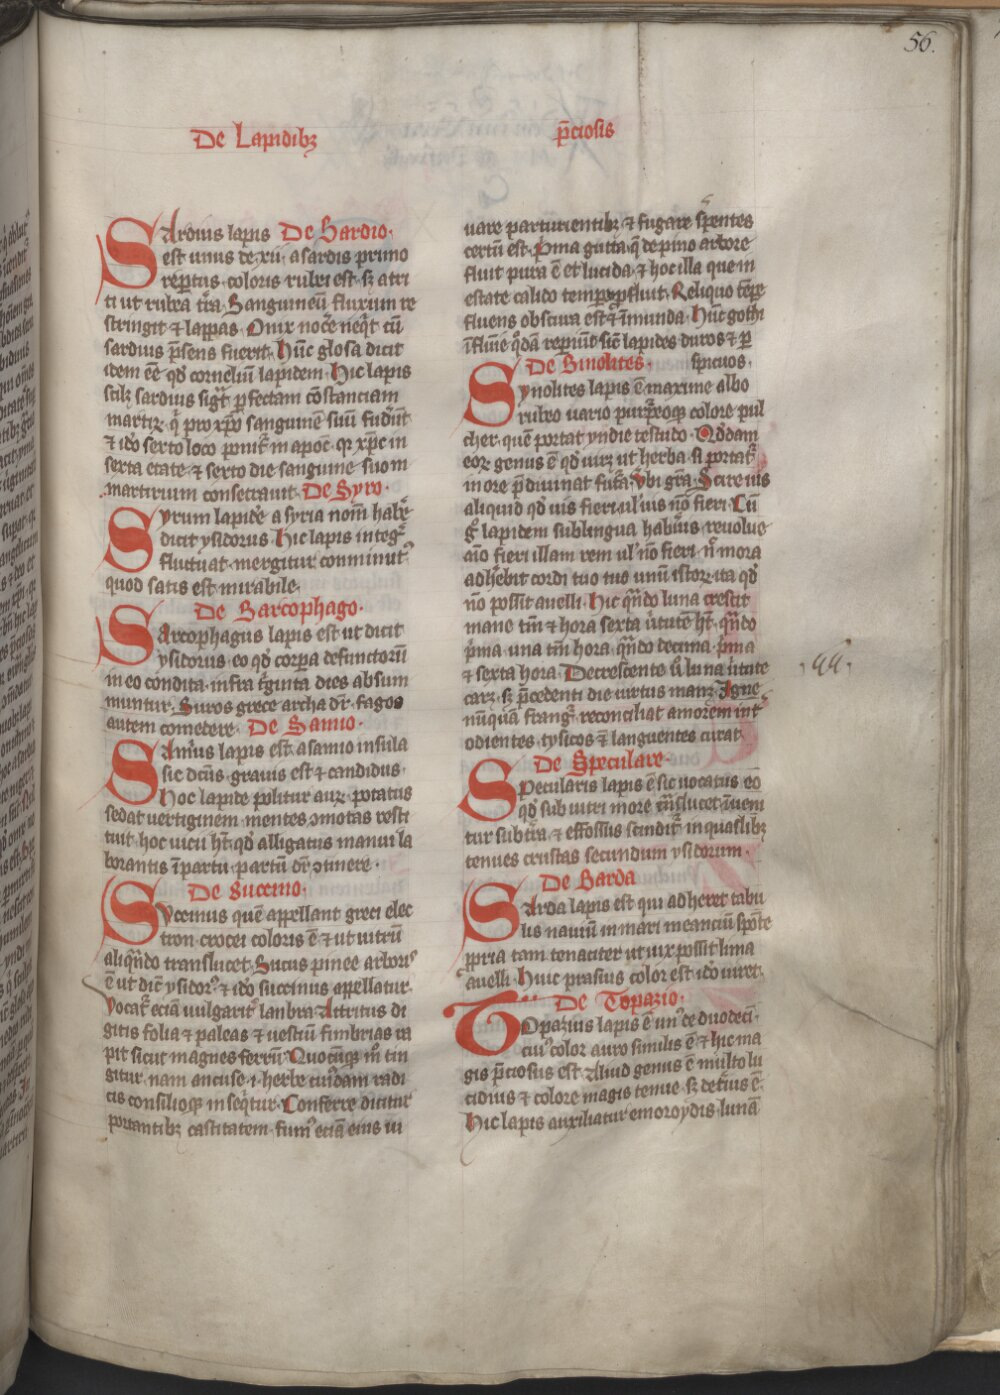 56.
De Lapidibꝫ p̄ciosis
SArdius lapis De Sardio·
est unus de xii· a sardis primo
repertus· coloris rubri est· sꝫ atri
ti ut rubea t̄ra· Sanguineū fluxum re
stringit ⁊ lappas· Onix noc̄e neq̄t cū
sardius p̄sens fuerit· Hūc glosa dicit
idem ēē qd̄ corneliū lapidem· Hic lapis
scilꝫ sardius sigᵗ ꝑfectam cōstanciam
martiꝝ qͥ pro xp̄o sanguinē suū fudūt
⁊ id̄o sexto loco ponit᷑ in apoc̄· qꝛ xp̄c in
sexta etate ⁊ sexto die sanguine suo m
martirium consecrauit· De Syro·
SYrum lapidē a syria nom̄ habe͛
dicit ysidorus· Hic lapis integ͛
fluctuat· mergitur conminut᷑
quod satis est mirabile·
De Sarcophago·
SArcophagus lapis est ut dicit
ysidorus· eo qd̄ corꝑa defunctorū
in eo condita· infra tͥginta dies absum
muntur· Suros grece archa dr̄· fagos
autem comedere· De Samio·
SAmius lapis est· a samo insula
sic dc̄us· grauis est ⁊ candidus·
Hoc lapide politur auꝝ· potatus
sedat uertiginem· mentes ꝯmotas resti
tuit· hoc uicii hꝫ· qd̄ alligatus manui la
borantis ī partu· partū dr̄ ꝯtinere·
De Succino·
SVccinus quē appellant greci elec
tron· crocei coloris ē ⁊ ut uitrū
aliqn̄do translucet· Sucus pinee arborꝰ
ē ut dic̄t ysidorꝰ· ⁊ id̄o succinus appellatur
Vocat᷑ eciā uulgarit᷑ lanbra· Attritus di
gitis folia ⁊ paleas ⁊ uestiū fimbrias ra
pit sicut magnes ferrū· Quocūqꝫ m̄ tin
gitur· nam ancuse ·i· herbe cuiꝰdam radi
cis consilioqꝫ inseq̄tur· Conferre dicitur
portantibꝫ castitatem· fumꝰ eciā eius iu
uare parturientibꝫ ⁊ fugare s̄pentes
certū est· Pͥma gutta q̄ de pino arbore
fluit pura ē et lucida· ⁊ hoc illa que in
estate calido tempore ꝓfluit· Reliquo tēꝑe
fluens obscura est ⁊ īmunda· Hūc gothi
ī flūīe qd̄ā repiūt sic̄ lapides duros ⁊ ꝑ
De Sinolites· spicuos·
SYnolites lapis ē maxime albo
rubeo uario purpͥreoqꝫ colore pul
cher· quē portat yndie testudo· Qd̄dam
eoꝝ genus ē qd̄ uirꝫ ut herba· si portat᷑
in ore p̄diuinat fut᷑a· Vbi gr̄a· Scire uis
aliquid qd̄ uis fieri ul̓ uis nō fieri· Cū
g͛ lapidem sub lingua habūis· reuolue
aīo fieri illam rem ul̓ nō fieri· nͥ mora
adh̄ebit cordi tuo tuo unū istoꝝ ita qd̄
nō possit auelli· Hic qn̄do luna crescit
mane tm̄ ⁊ hora sexta ūtutē hꝫ· qn̄do
pͥma· una tm̄ hora· qn̄do decima· pͥma
⁊ sexta hora· Decrescente ū luna ūtute
caꝝ· sꝫ p̄cedenti die uirtus manꝫ· Igne
nūquā frangͥ· reconciliat amorem int᷑
odientes· tysicos ⁊ languentes curat·
·44·
De Speculare·
SPecularis lapis ē sic uocatus eo
qd̄ sub uitri more trāslucet· īueni
tur sub t̄ra ⁊ effossus scindit᷑ in quaslibꝫ
tenues crustas secundum ysidorum·
De Sarda
SArda lapis est qui adheret tabu
lis nauiū in mari meanciū spōte
ꝓpria tam tenaciter ut uix possit lima
auelli· Huic prasius color est· id̄o uiret·
De Topazio·
TOpazius lapis ē unꝰ ce duodeci·
cuiꝰ color auro similis ē ⁊ hic ma
gis p̄ciosus est· Aliud genus ē multo lu
cidius ⁊ colore magis tenue· sꝫ det͛ius ē·
Hic lapis auxiliatur emoroydis· lunā